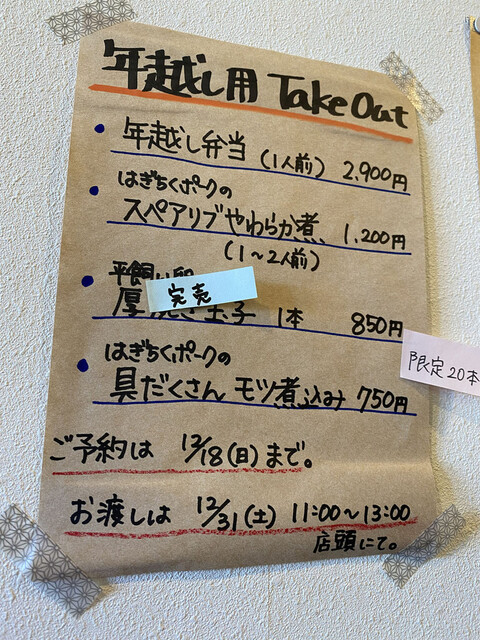 年越し用 Take Out
• 年越し弁当 (1人前) 2,900円
• はぎちくポークの
スペアリブやわらか煮 1,200円
(1〜2人前)
• 平飼い卵
完売
厚焼き玉子 1本 850円
限定20本
• はぎちくポークの
具だくさん モツ煮込み 750円
ご予約は 12/18(日)まで。
お渡しは 12/31(土) 11:00〜13:00
店頭にて。